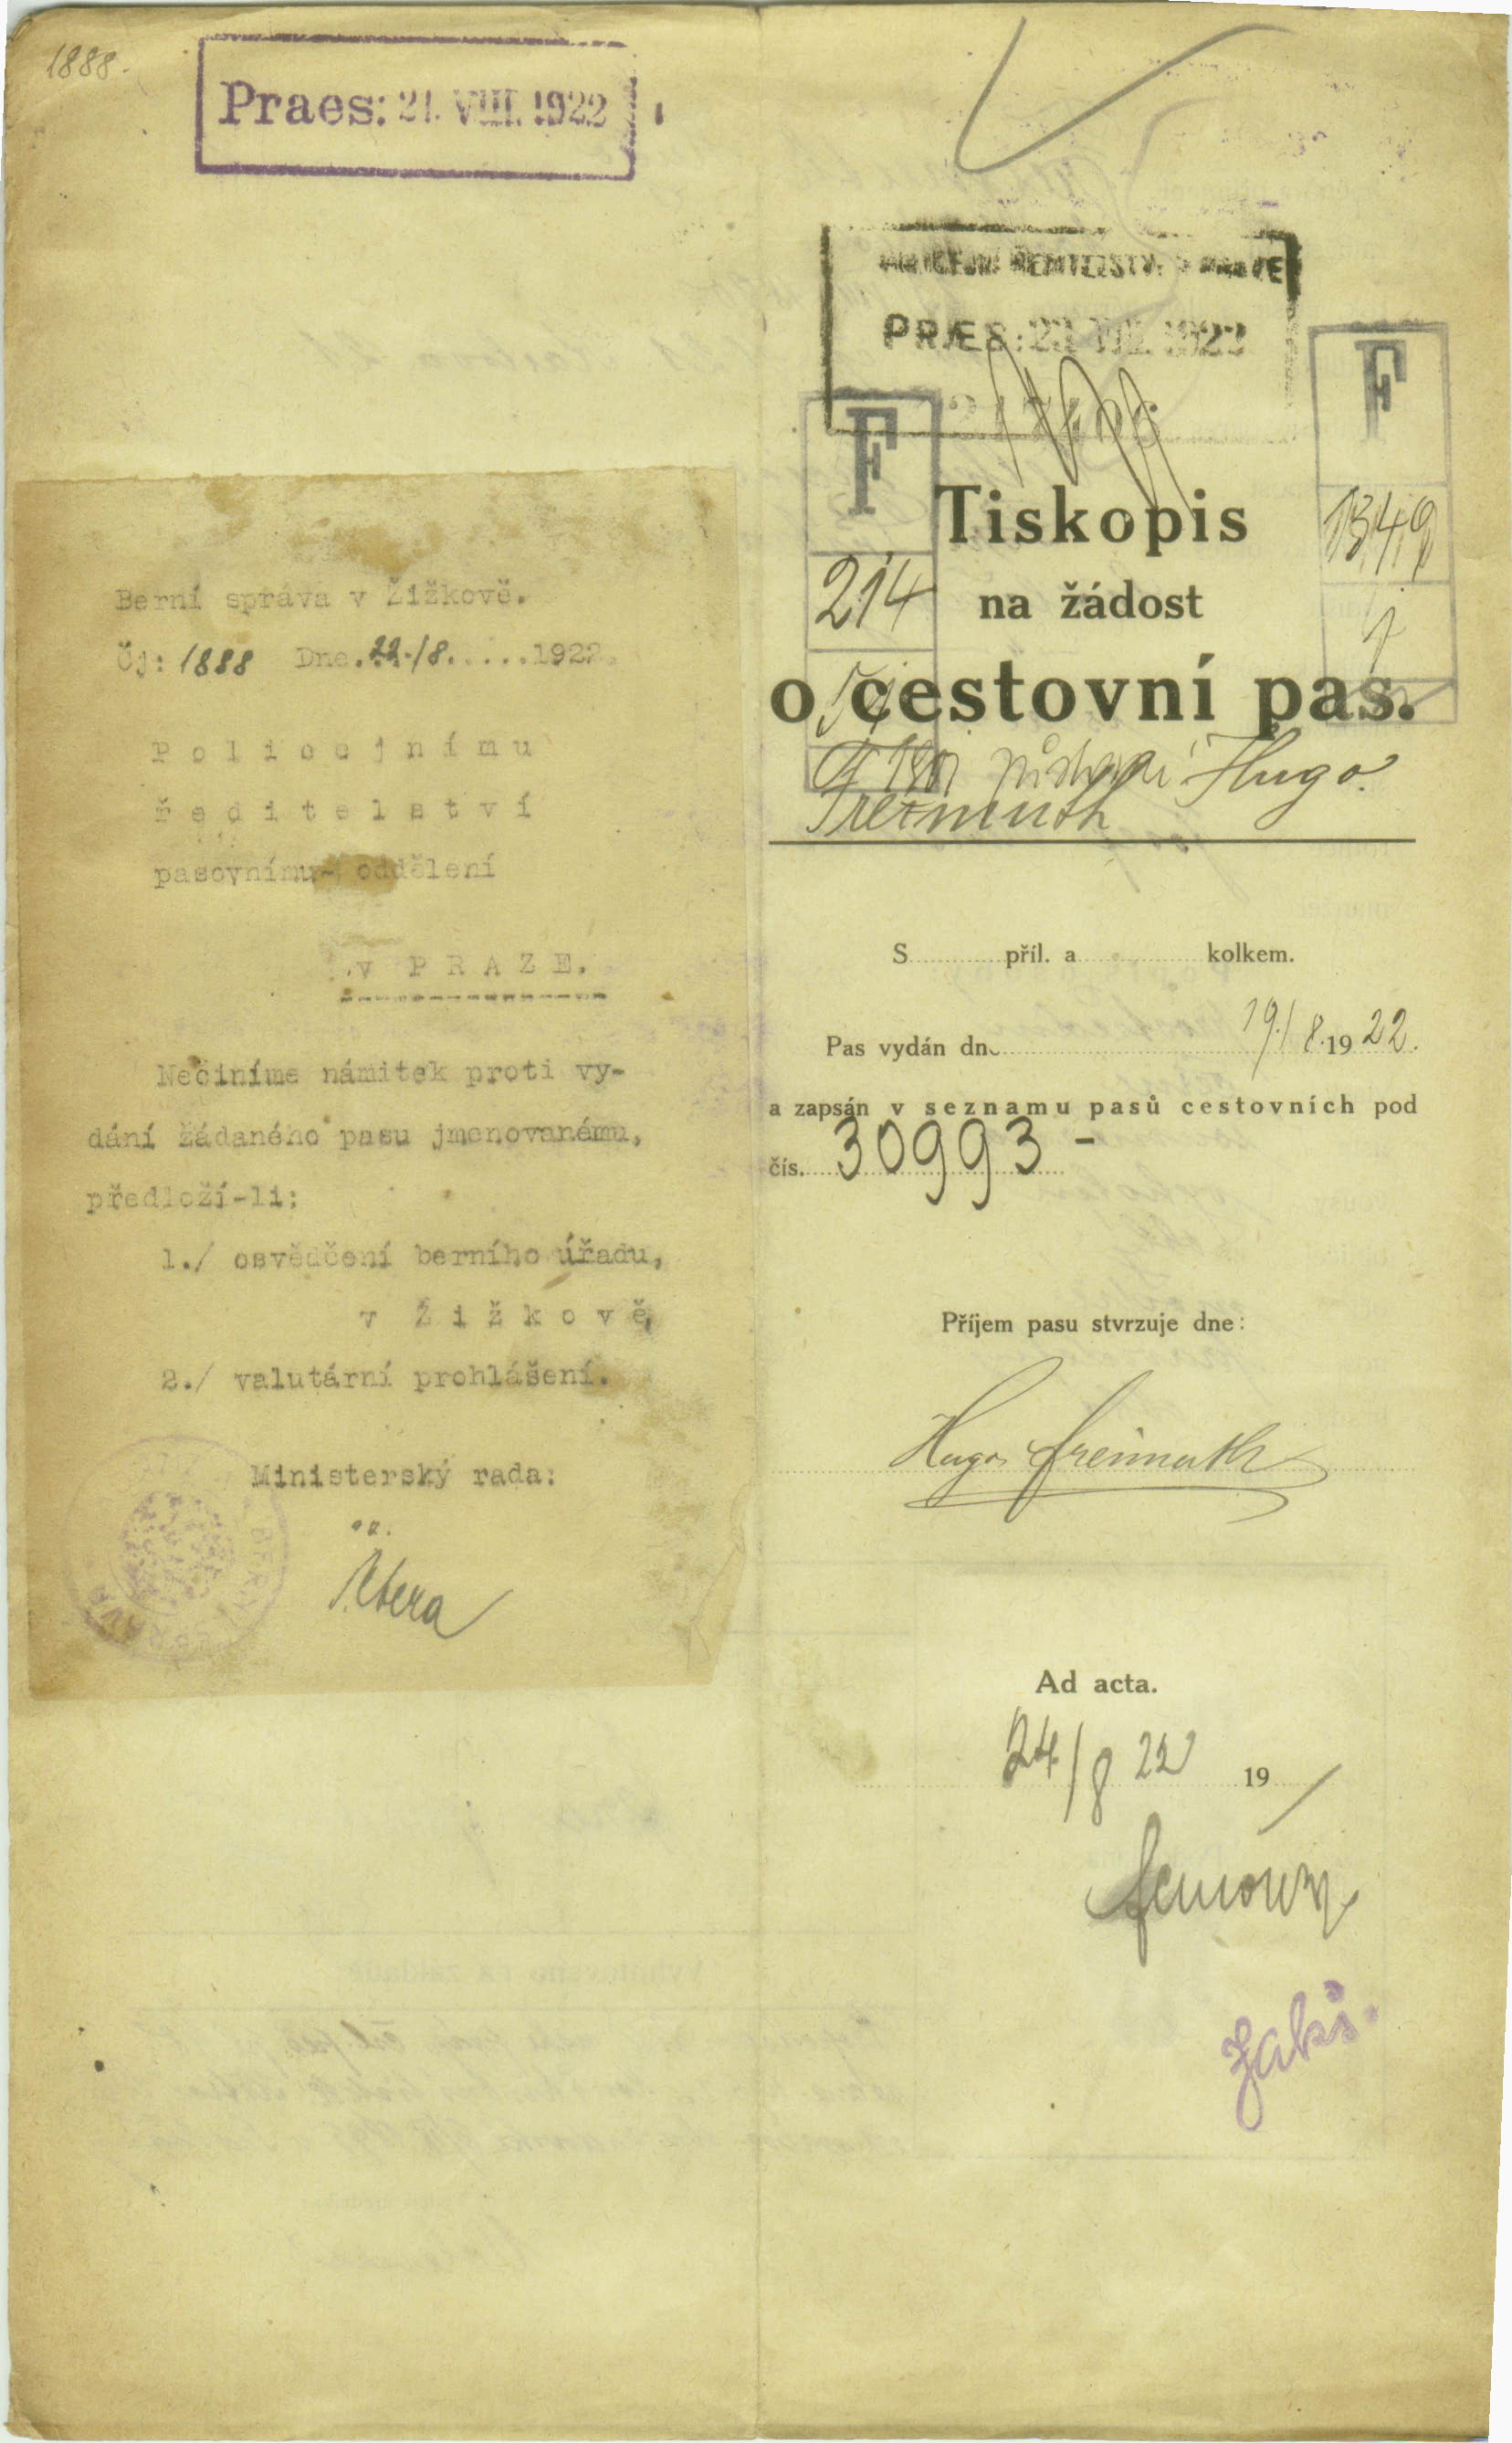 1888.
Praes: 21. VIII. 1922
Berní správa v Žižkově.
Čj: 1888 Dne.22./8.....1922.
Policejnímu
ředitelství
pasovnímu oddělení
v PRAZE.
Nečiníme námitek proti vy-
dání žádaného pasu jmenovanému,
předloží-li:
1./ osvědčení berního úřadu,
v Žižkově,
2./ valutární prohlášení.
Ministerský rada:
PRÆS: 1922
F
F
214
1349
1
Tiskopis
na žádost
o cestovní pas.
Hugo
Freimuth
S příl. a kolkem.
Pas vydán dne 19./8.1922.
a zapsán v seznamu pasů cestovních pod
čís. 30993 -
Příjem pasu stvrzuje dne:
Hugo Freimuth
Ad acta.
24/8 22 19
Jakš.